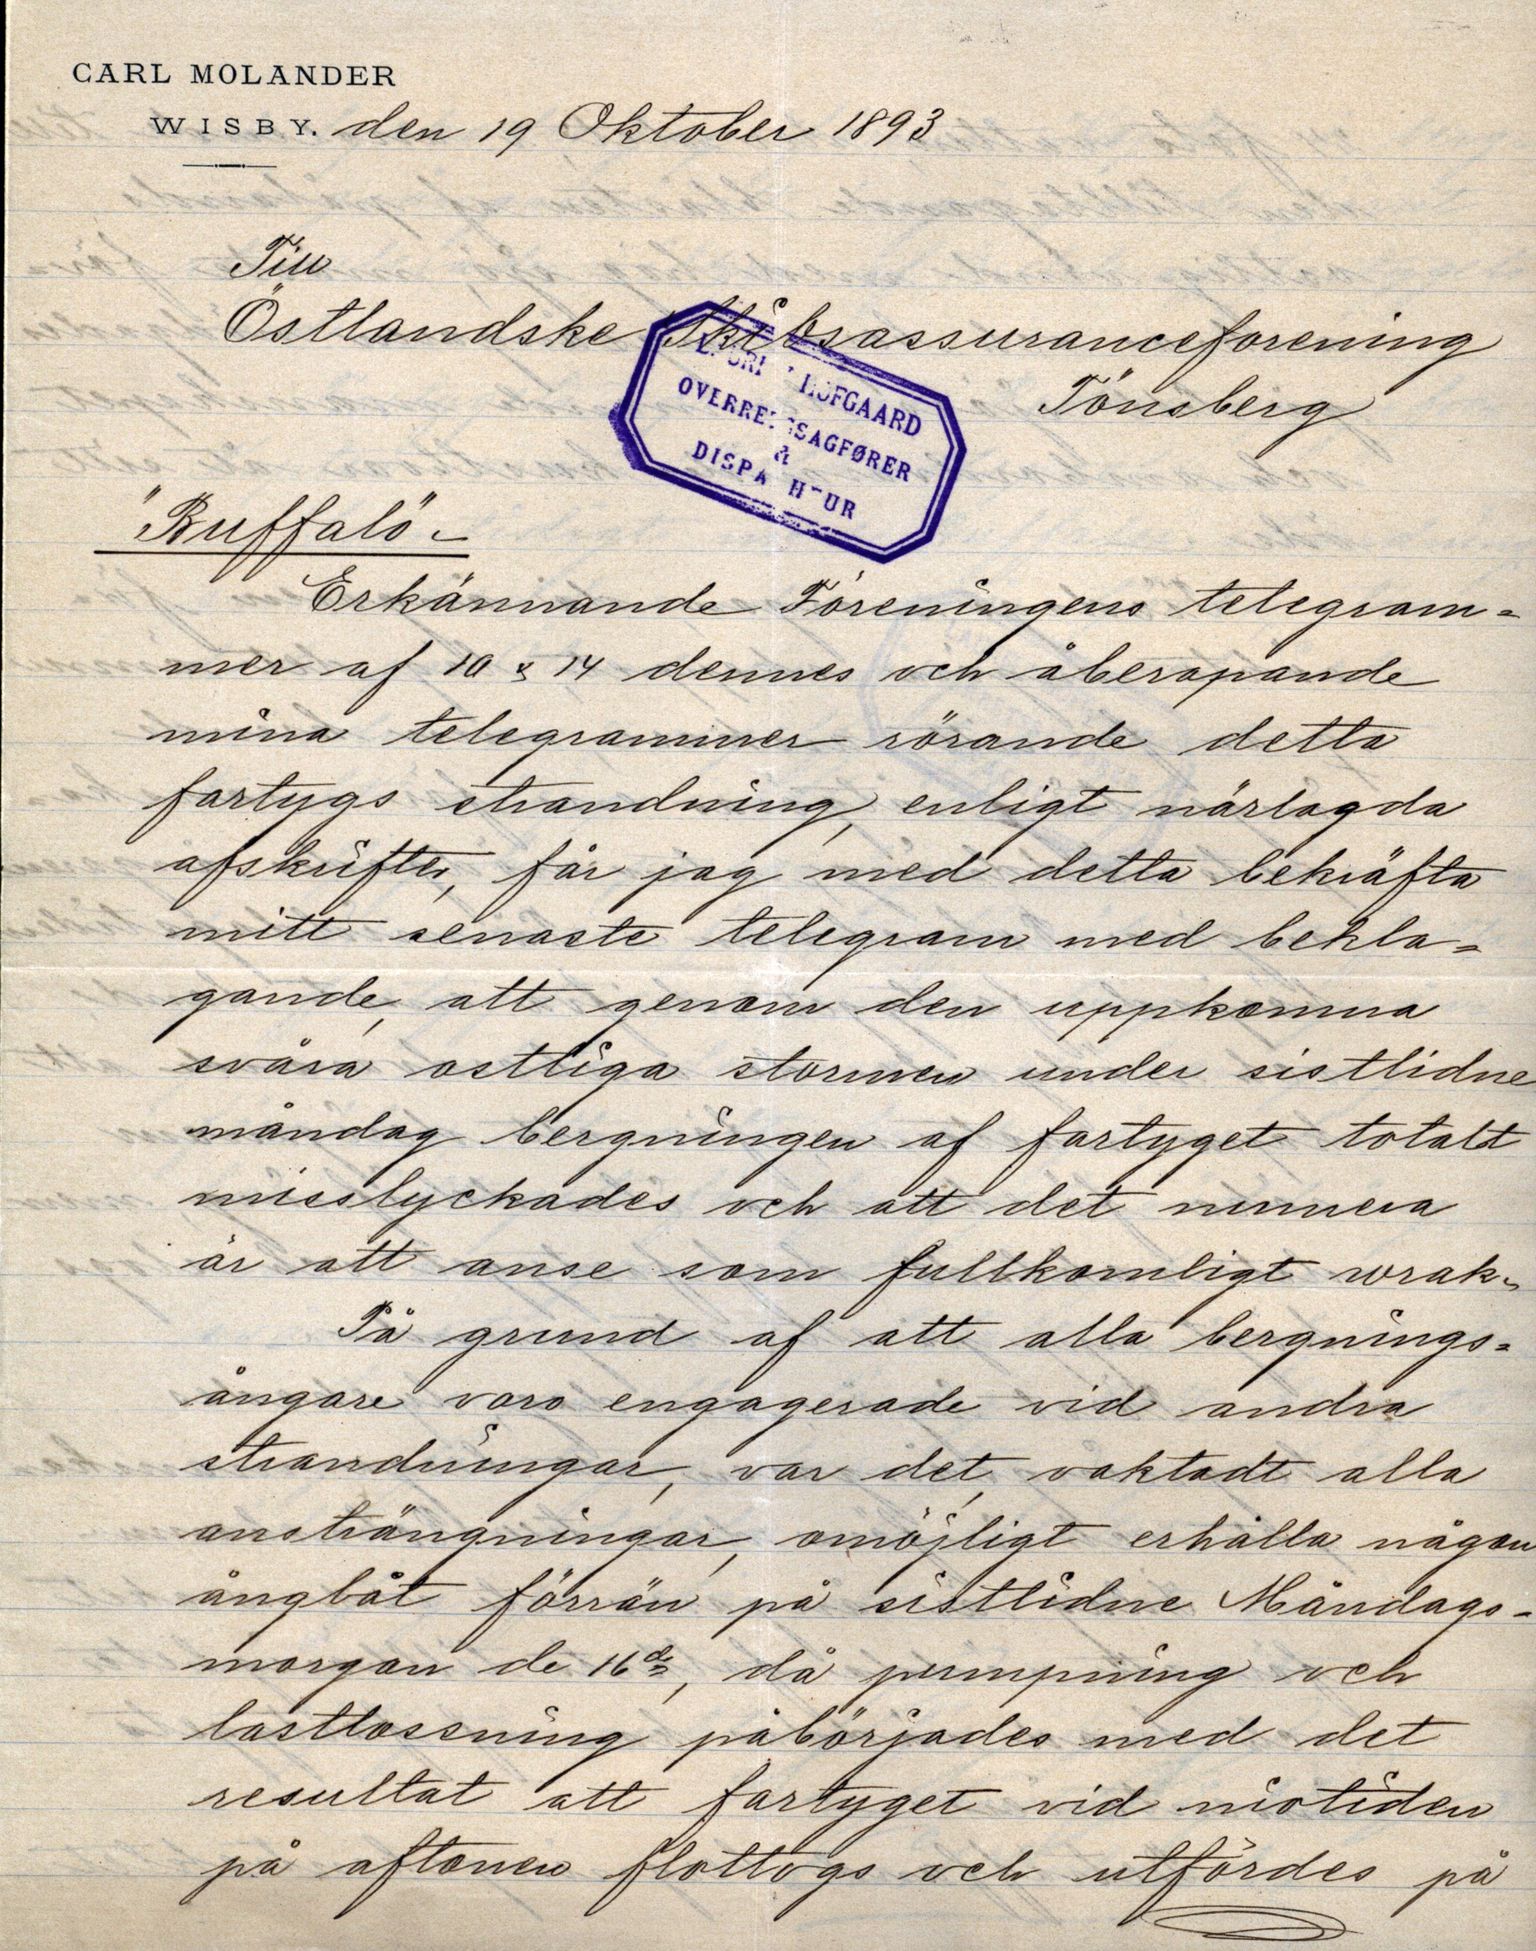 CARL MOLANDER
WISBY. den 19 Oktober 1893
Till
Östlandske Skibsassuranceforening
Tönsberg
HOFGAARD
OVERRETSSAGFØRER
&
DISPACHEUR
"Buffalo".
Erkännande Föreningens telegram=
mer af 10 & 14 dennes och åberopande
mina telegrammer rörande detta
fartygs strandning, enligt närlagda
afskrifter, får jag med detta bekräfta
mitt senaste telegram med bekla=
gande, att genom den uppkomna
svåra ostliga stormen under sistlidne
måndag bergningen af fartyget totalt
misslyckades och att det numera
är att anse som fullkomligt wrak.
På grund af att alla bergnings=
ångare voro engagerade vid andra
strandningar, var det, oaktadt alla
ansträngningar, omöjligt erhålla någon
ångbåt förrän på sistlidne Måndags=
morgon de 16de, då pumpning och
lastlossning påbörjades med det
resultat att fartyget vid niotiden
på aftonen flottogs och utfördes på